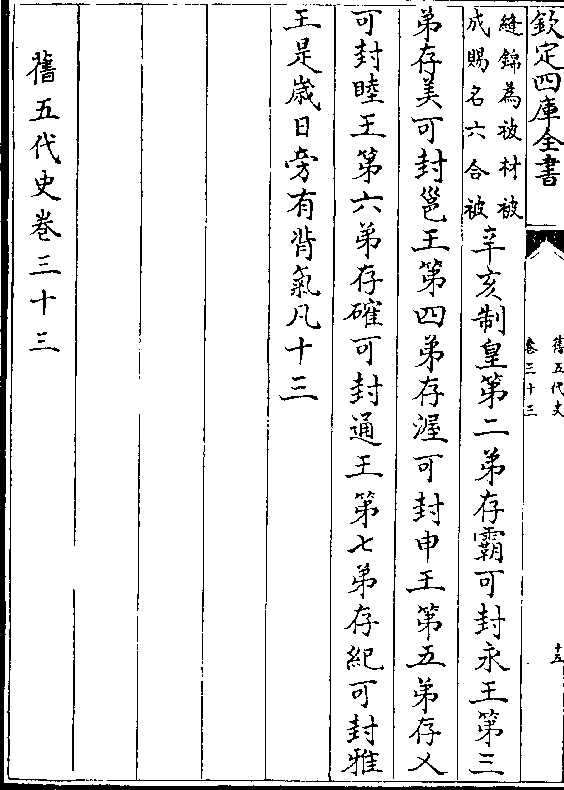 欽定四庫全書
舊五代史
卷三十三
十五
縫錦為被材被
成賜名六合被
辛亥制皇第二弟存霸可封永王第三
弟存美可封邕王第四弟存渥可封申王第五弟存乂
可封睦王第六弟存確可封通王第七弟存紀可封雅
王是歲日旁有背氣凡十三
舊五代史卷三十三